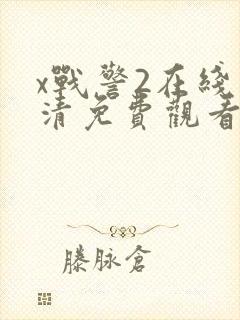 x戰警2在綫
清免費觀看
滕脉倉